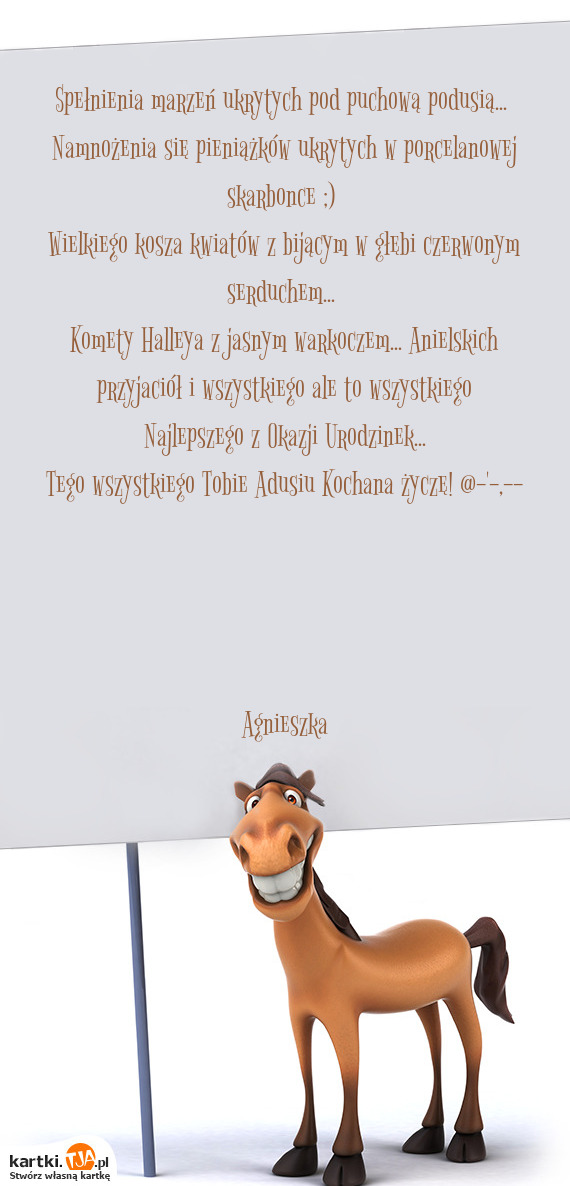 Spełnienia marzeń ukrytych pod puchową podusią...
Namnożenia się pieniążków ukrytych w porcelanowej
skarbonce ;)
Wielkiego kosza kwiatów z bijącym w głębi czerwonym
serduchem...
Komety Halleya z jasnym warkoczem... Anielskich
przyjaciół i wszystkiego ale to wszystkiego
Najlepszego z Okazji Urodzinek...
Tego wszystkiego Tobie Adusiu Kochana życzę! @-'-,--
Agnieszka
kartki.TJA.pl
Stwórz własną kartkę